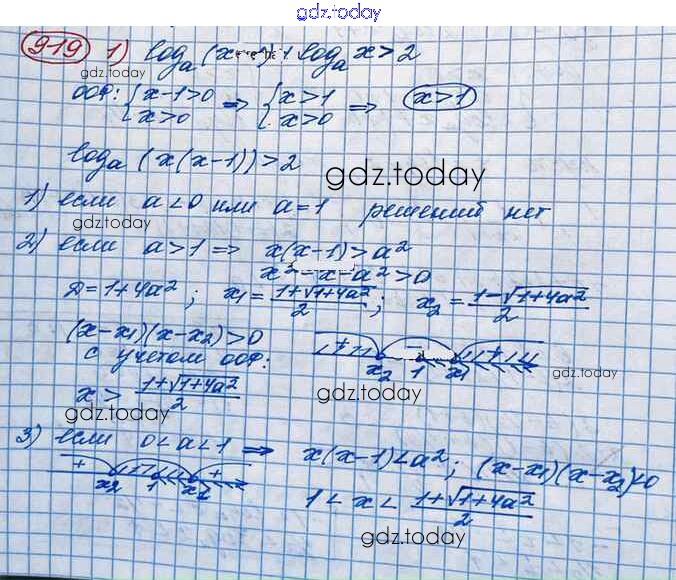 gdz.today
919 1) logₐ(x-1) + logₐ x > 2
gdz.today
ООФ: { x-1>0 x>0 => { x>1 x>0 => x>1
logₐ (x(x-1)) > 2
gdz.today
1) если a<0 или a=1 решений нет
gdz.today
2) если a>1 => x(x-1)>a²
x²-x-a²>0
D=1+4a²; x₁=(1+√(1+4a²))/2; x₂=(1-√(1+4a²))/2
(x-x₁)(x-x₂)>0
с учетом ООФ:
+ - + x₂ 1 x₁
gdz.today
x > (1+√(1+4a²))/2
gdz.today
gdz.today
3) если 0<a<1 => x(x-1)<a²; (x-x₁)(x-x₂)<0
+ + x₂ 1 x₁
1 < x < (1+√(1+4a²))/2
gdz.today